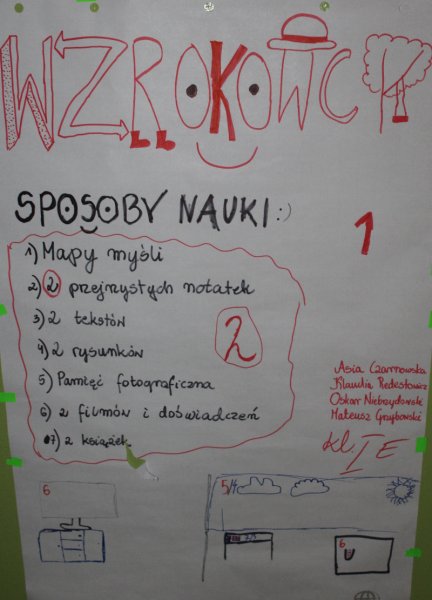 WZROKOWCY
SPOSOBY NAUKI :)
1
1) Mapy myśli
2) z przejrzystych notatek
3) z tekstów
4) z rysunków
2
5) Pamięć fotograficzna
6) z filmów i doświadczeń
7) z książek
Asia Czarnowska
Klaudia Redestowicz
Oskar Niebrzydowski
Mateusz Grzybowski
kl I E
6
5/4
6